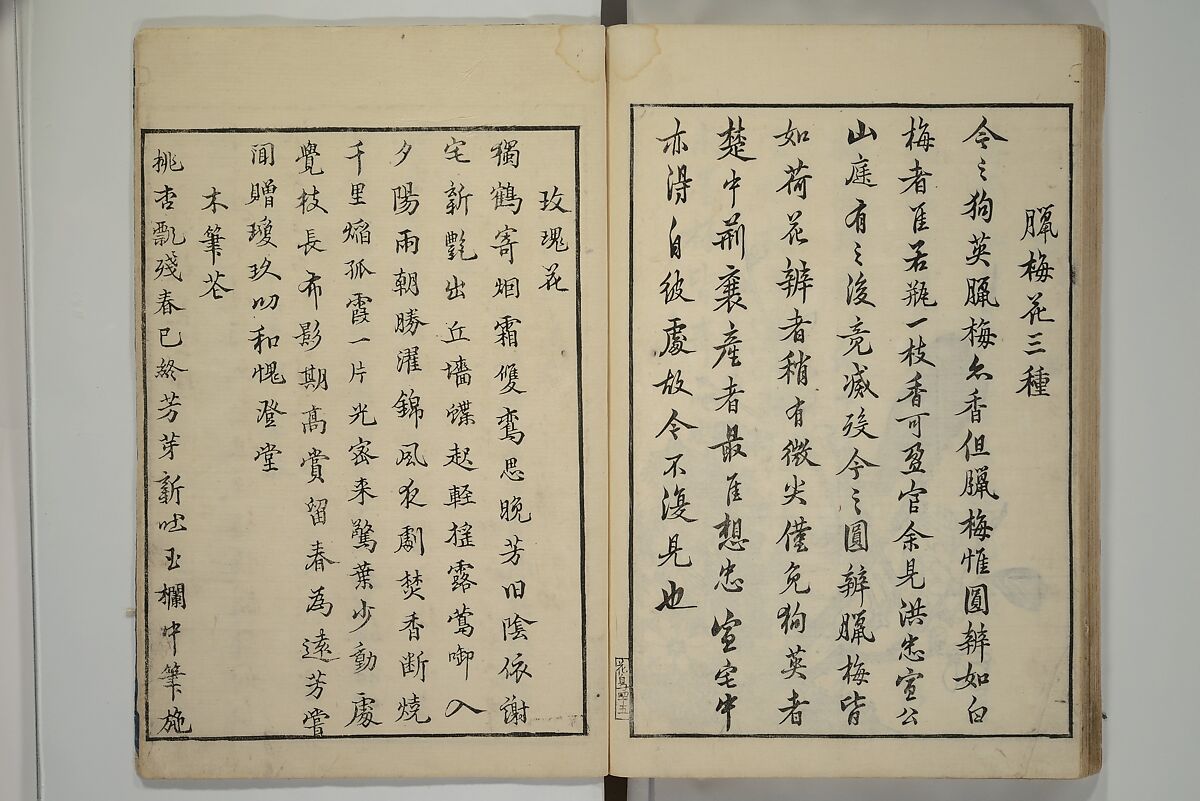 臘梅花三種
今之狗英臘梅亦香但臘梅惟圓辨如白
梅者佳若瓶一枝香可盈官余見洪忠宣公
山庭有之後竟減殁今之圓辨臘梅皆
如荷花辨者稍有微尖僅免狗英者
楚中荊襄產者最佳想忠宣宅中
亦得自彼處故今不復見也
花鳥四ノ五
玫瑰花
獨鶴寄烟霜雙鸞思晚芳旧陰依謝
宅新艷出丘墻蝶起輕搖露鶯啣入
夕陽雨朝勝濯錦風夜劇焚香断燒
千里焔孤霞一片光密来驚葉少動處
覺枝長布影期高賞留春為遠芳嘗
聞贈瓊玖叨和愧登堂
木筆花
桃杏飄殘春已終芳芽新吐玉欄中筆施